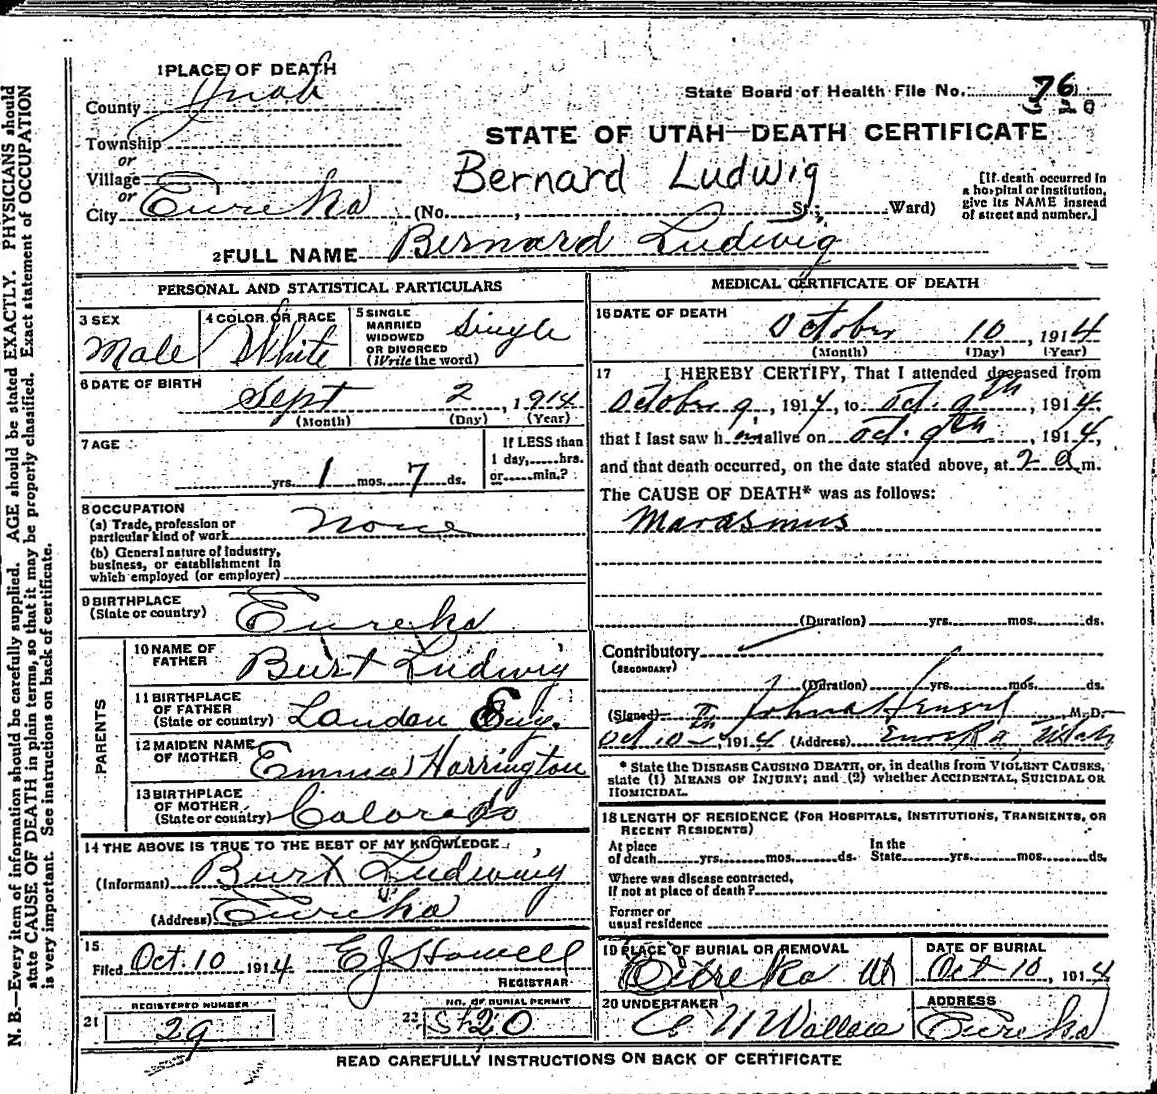 1 PLACE OF DEATH
County Juab
State Board of Health File No. 76
320
Township
or
Village
or
City Eureka
STATE OF UTAH—DEATH CERTIFICATE
Bernard Ludwig
(No. , St.; Ward)
[If death occurred in
a hospital or institution,
give its NAME instead
of street and number.]
2 FULL NAME Bernard Ludwig
PERSONAL AND STATISTICAL PARTICULARS
3 SEX
Male
4 COLOR OR RACE
White
5 SINGLE
MARRIED
WIDOWED
OR DIVORCED
(Write the word)
Single
6 DATE OF BIRTH
Sept 2, 1914
(Month) (Day) (Year)
7 AGE
yrs. 1 mos. 7 ds.
If LESS than
1 day, hrs.
or min.?
8 OCCUPATION
(a) Trade, profession or
particular kind of work None
(b) General nature of industry,
business, or establishment in
which employed (or employer)
9 BIRTHPLACE
(State or country) Eureka
PARENTS
10 NAME OF
FATHER Burt Ludwig
11 BIRTHPLACE
OF FATHER
(State or country) Landan Eng.
12 MAIDEN NAME
OF MOTHER Emma Harrington
13 BIRTHPLACE
OF MOTHER
(State or country) Colorado
14 THE ABOVE IS TRUE TO THE BEST OF MY KNOWLEDGE
(Informant) Burt Ludwig
(Address) Eureka
15
Filed Oct. 10 1914 E J Howell
REGISTRAR
REGISTERED NUMBER
21 29
NO. OF BURIAL PERMIT
22 20
MEDICAL CERTIFICATE OF DEATH
16 DATE OF DEATH
October 10, 1914
(Month) (Day) (Year)
17 I HEREBY CERTIFY, That I attended deceased from
October 9, 1914, to Oct. 9th, 1914,
that I last saw him alive on Oct. 9th, 1914,
and that death occurred, on the date stated above, at 2 a m.
The CAUSE OF DEATH* was as follows:
Marasmus
(Duration) yrs. mos. ds.
Contributory
(SECONDARY)
(Duration) yrs. mos. ds.
(Signed) M. D.
Oct 10th, 1914 (Address) Eureka Utah
* State the DISEASE CAUSING DEATH, or, in deaths from VIOLENT CAUSES,
state (1) MEANS OF INJURY; and (2) whether ACCIDENTAL, SUICIDAL OR
HOMICIDAL.
18 LENGTH OF RESIDENCE (FOR HOSPITALS, INSTITUTIONS, TRANSIENTS, OR
RECENT RESIDENTS)
At place
of death yrs. mos. ds.
In the
State yrs. mos. ds.
Where was disease contracted,
if not at place of death?
Former or
usual residence
19 PLACE OF BURIAL OR REMOVAL
Eureka Ut
DATE OF BURIAL
Oct 10, 1914
20 UNDERTAKER
C N Wallace
ADDRESS
Eureka
READ CAREFULLY INSTRUCTIONS ON BACK OF CERTIFICATE
N. B.—Every item of information should be carefully supplied. AGE should be stated EXACTLY. PHYSICIANS should
state CAUSE OF DEATH in plain terms, so that it may be properly classified. Exact statement of OCCUPATION
is very important. See instructions on back of certificate.